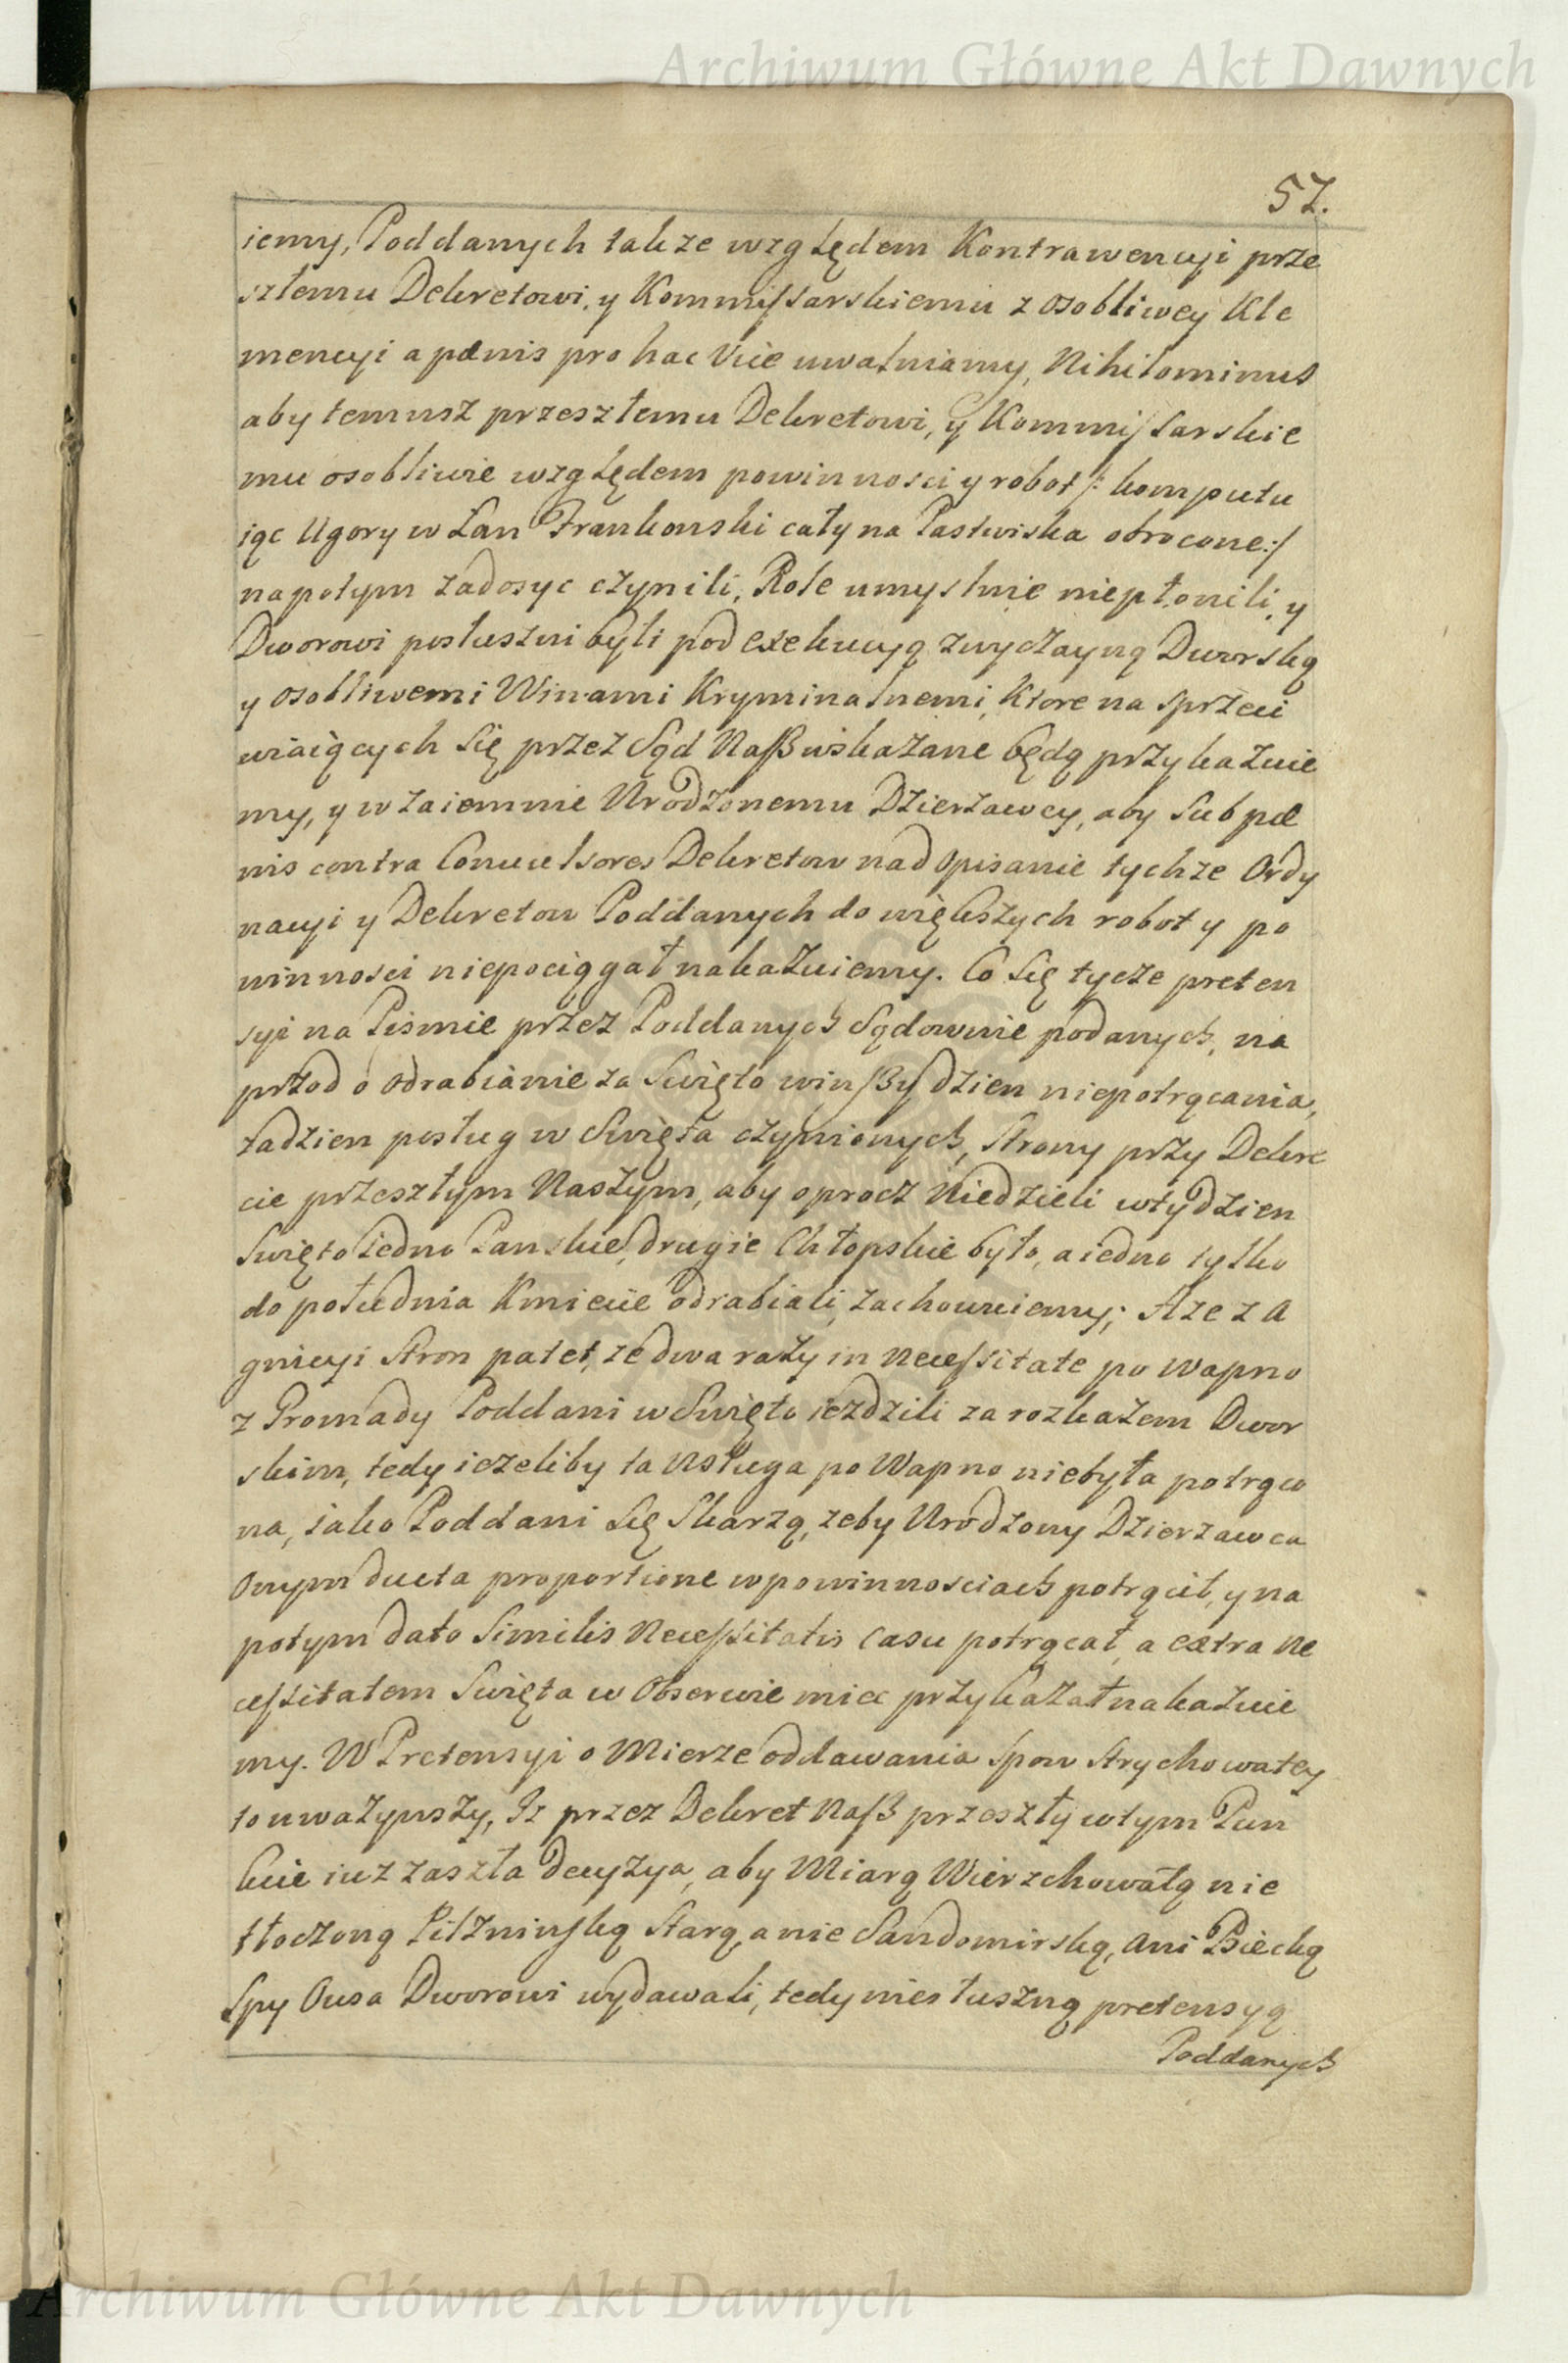 Archiwum Główne Akt Dawnych
57.
iemy, Poddanych takze względem Kontrawencyi prze
szłemu Dekretowi, y Kommissarskiemu z osobliwey Kle
mencyi a pœnis pro hac Vice uwalniamy, Nihilominus
aby temusz przeszłemu Dekretowi, y Kommissarskie
mu osobliwie względem powinnosci y robot /: komputu
iąc Ugory w Łan Frankonski cały na Pastwiska obrocone:/
napotym zadosyc czynili, Role umyslnie niepłonili, y
Dworowi posłuszni byli pod exekucyą zwyczayną Dworską
y osobliwemi Winami Kryminalnemi, Ktore na sprzeci
wiaiących się przez Sąd Nasz wskazane będą przykazuie
my, y wzaiemnie Urodzonemu Dzierzawcy, aby sub pœ
nis contra Convulsores Dekretow nad opisanie tychze Ordy
nacyi y Dekretow Poddanych do większych robot y po
winnosci niepociągał nakazuiemy. Co się tycze preten
syi na Pismie przez Poddanych Sądownie podanych, na
przod o odrabianie za Swięto w inszy dzien niepotrącania,
zadzien posług w Swięta czynionych, Strony przy Dekre
cie przeszłym Naszym, aby oprocz Niedzieli wtydzien
Swięto iedno Panskie, drugie Chłopskie było, a iedno tylko
do południa Kmiecie odrabiali, zachowuiemy; A ze z A
gnicyi Stron patet, ze dwa razy in Necessitate po Wapno
z Gromady Poddani w Swięto iezdzili za rozkazem Dwor
skim, tedy iezeliby ta Usługa po Wapno niebyła potrąco
na, iako Poddani się Skarzą, zeby Urodzony Dzierzawca
Onym ducta proportione w powinnosciach potrącił, y na
potym dato Similis Necessitatis casu potrącał, a extra Ne
cessitatem Swięta w Obserwie miec przykazał nakazuie
my. W Pretensyi o Mierze oddawania Spow Strychowatey
to uwazywszy, Iz przez Dekret Nasz przeszły wtym Pun
kcie iuz zaszła decyzya, aby Miarą Wierzchowatą nie
tłoczoną Pilzninską Starą, a nie Sandomirską, ani Biecką
Spy Owsa Dworowi wydawali, tedy niesłuszną pretensyą
Poddanych
Archiwum Główne Akt Dawnych